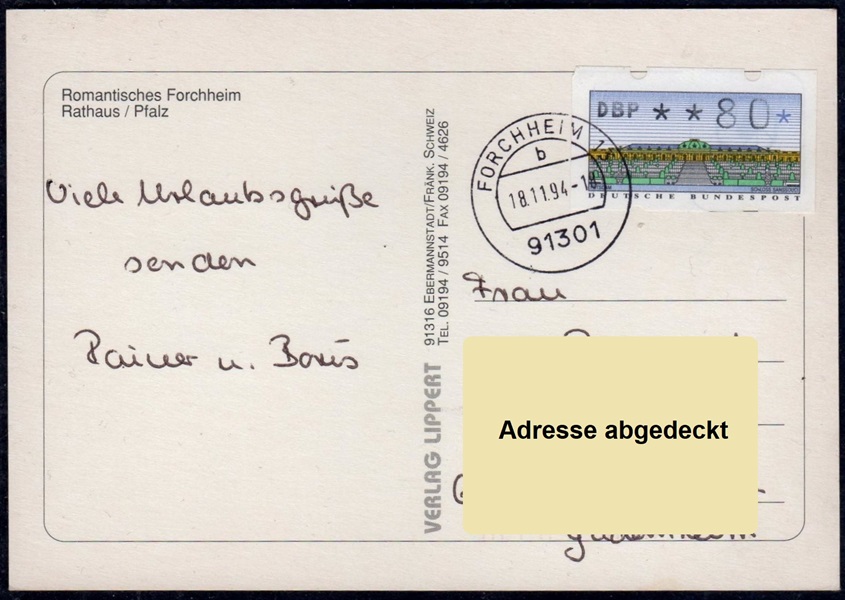 Romantisches Forchheim
Rathaus / Pfalz
Viele Urlaubsgrüße
senden
Rainer u. Boris
VERLAG LIPPERT
91316 EBERMANNSTADT/FRÄNK. SCHWEIZ
TEL. 09194 / 9514 FAX 09194 / 4626
DBP **80*
DEUTSCHE BUNDESPOST
FORCHHEIM 1
b
18.11.94-18
91301
Frau
Adresse abgedeckt